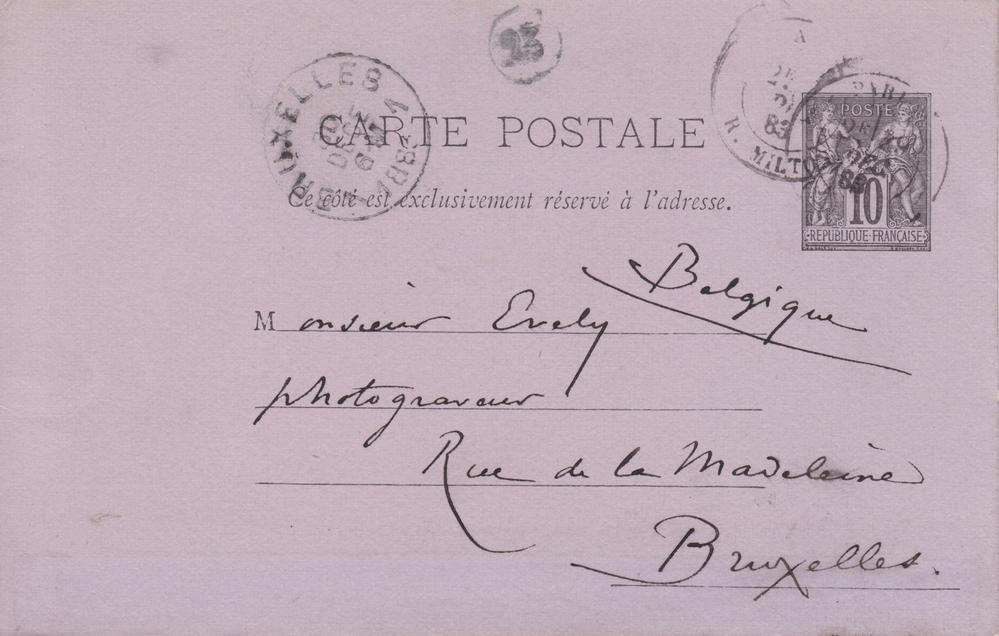 23
BRUXELLES
1883
DEC
6
PARIS
R. MILTON
83
DEC
83
CARTE POSTALE
Ce côté est exclusivement réservé à l'adresse.
POSTE
10
REPUBLIQUE FRANÇAISE
Belgique
Monsieur Evely
photograveur
Rue de la Madeleine
Bruxelles.